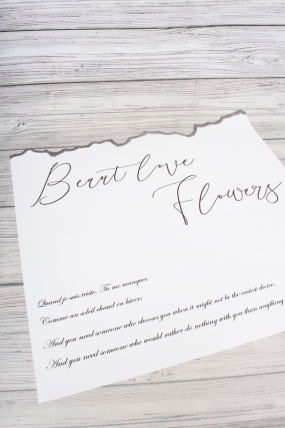 Beaut love
Flowers
Quand je suis triste. Tu me manques
Comme un soleil chaud en hiver:
And you need someone who chooses you when it might not be the easiest choice.
And you need someone who would rather do nothing with you than anything